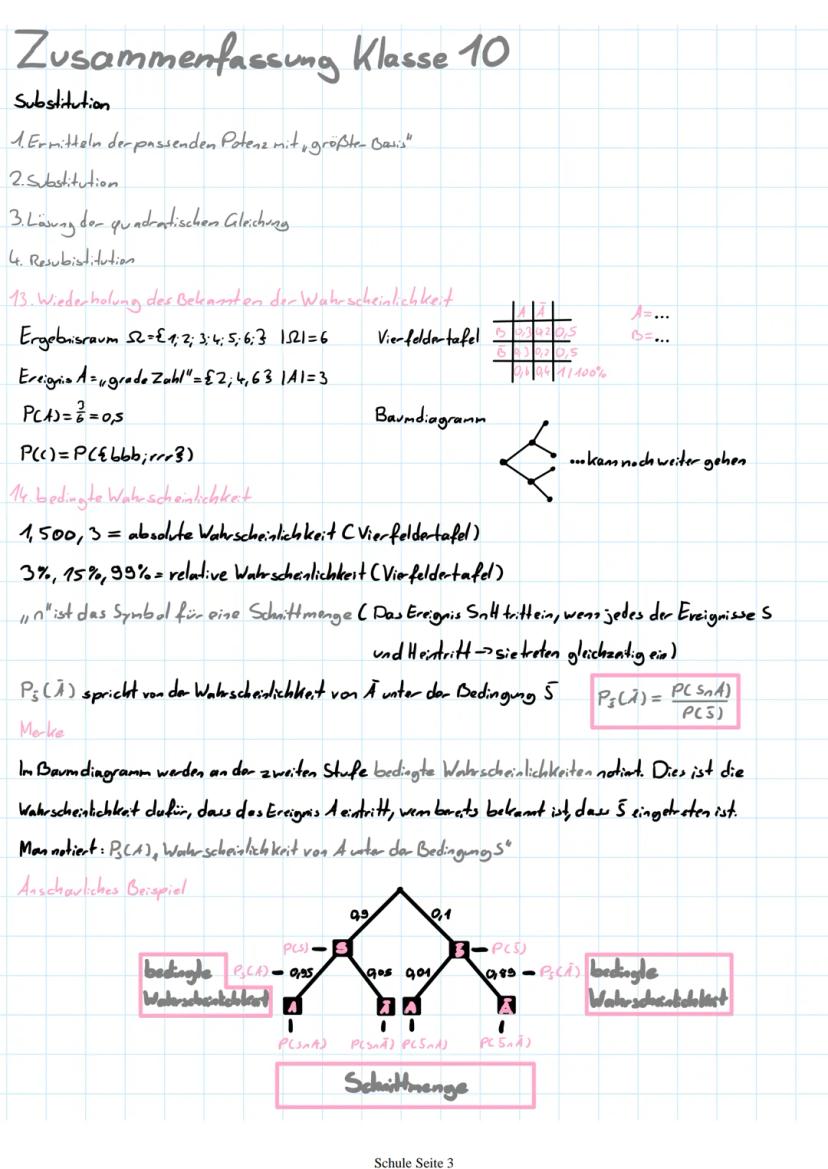 Zusammenfassung Klasse 10
Substitution
1. Ermitteln der passenden Potenz mit „größter Basis"
2. Substitution
3. Lösung der quadratischen Gleichung
4. Resubistitution
13. Wiederholung des Bekannten der Wahrscheinlichkeit
Ergebnisraum Ω={1; 2; 3; 4; 5; 6;} |Ω|=6
Ereignis A=„grade Zahl"={2; 4, 6} |A|=3
P(A)=3/6=0,5
P(C)=P({bbb;rrr})
Vierfeldertafel
A Ā
B 0,3 0,2 0,5
B̄ 0,3 0,2 0,5
0,6 0,4 1/100%
A=...
B=...
Baumdiagramm
...kann noch weiter gehen
14. bedingte Wahrscheinlichkeit
1, 500, 3 = absolute Wahrscheinlichkeit (Vierfeldertafel)
3%, 15%, 99% = relative Wahrscheinlichkeit (Vierfeldertafel)
„∩" ist das Symbol für eine Schnittmenge (Das Ereignis S∩H tritt ein, wenn jedes der Ereignisse S
und H eintritt → sie treten gleichzeitig ein)
P_S̄(Ā) spricht von der Wahrscheinlichkeit von Ā unter der Bedingung S̄
P_S̄(Ā) = P(S∩A) / P(S̄)
Merke
Im Baumdiagramm werden an der zweiten Stufe bedingte Wahrscheinlichkeiten notiert. Dies ist die
Wahrscheinlichkeit dafür, dass das Ereignis A eintritt, wenn bereits bekannt ist, dass S eingetreten ist.
Man notiert: P_S(A), Wahrscheinlichkeit von A unter der Bedingung S"
Anschauliches Beispiel
0,9 0,1
P(S) – S S̄ – P(S̄)
bedingte Wahrscheinlichkeit
P_S(A) – 0,95 0,05 0,01 0,89 – P_S̄(Ā)
bedingte Wahrscheinlichkeit
A Ā A Ā
P(S∩A) P(S∩Ā) P(S̄∩A) P(S̄∩Ā)
Schnittmenge
Schule Seite 3